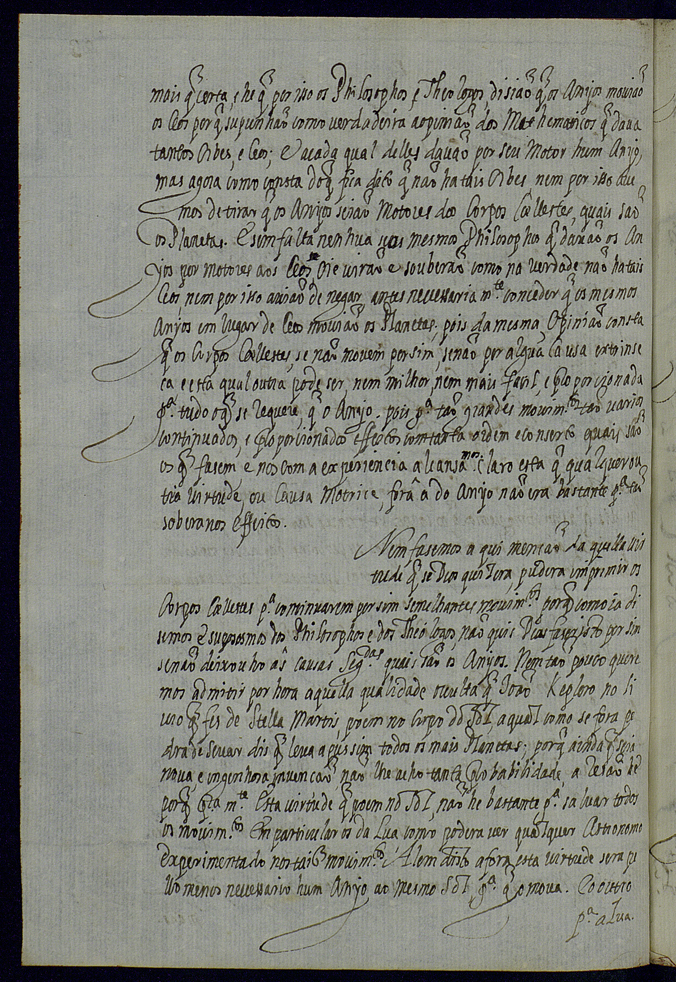 mais q̃ certa, e he q̃ por isso os Philosophos, e Theologos, disião q̃ os Anjos movião
os Ceos porq̃ supunhão como verdadeira a opinião dos Mathematicos q̃ dava
tantos Orbes, e Ceos; e a cada qual delles davão por seu Motor hum Anjo,
mas agora como consta do q̃ fica dito q̃ não ha tais Orbes, nem por isso ave
mos de tirar q̃ os Anjos seião Motores dos Corpos Cœllestes, quais são
os Planetas. E sim falta nenhũa os mesmos Philosophos q̃ davão os An
jos por motores aos Ceos, se oie virão e souberão como na verdade não ha tais
Ceos, nem por isso avião de negar, antes necessariam.te conceder q̃ os mesmos
Anjos em lugar de Ceos movião os Planetas, pois da mesma Opinião consta
q̃ os Corpos Cœllestes, se não movem por sim, senão por algũa Causa extrinse
ca e esta qual outra pode ser, nem milhor, nem mais facil, e proporcionada
p.ª tudo o q̃ se requere q̃ o Anjo. pois p.ª tão grandes movim.tos tão varios
continuados, e proporcionados effeitos com tanta ordem e conserto quais são
os q̃ fasem e nos com a experiencia alcansamos: Claro esta q̃ qualquer ou
tra virtude, ou Causa Motrice, fora a do Anjo não era bastante p.ª tão
soberanos effeitos.
Nem fasemos aqui menção da quella vir
tude q̃ se Deos quisera, pudera imprimir os
Corpos Cœllestes p.ª continuarem por sim semelhantes movim.tos porq̃ como ia di
semos e suposmos dos Philosophos e dos Theologos, não quis Deos faser isto por sim
senão deixou ho ás causas Seg.das quais são os Anjos. Nem tão pouco quere
mos admitir por hora aquella qualidade oculta q̃ João Keplero, no li
vro q̃ fes de Stella Martis poem no Corpo do Sol, a qual como se fora pe
dra de sevar dis q̃ leva apos sim todos os mais Planetas; porq̃ ainda q̃ seja
nova e ingenhosa invenção não lhe veho tanta probabilidade, a resão he
porq̃ esta virtude q̃ poem no Sol, não he bastante p.ª salvar todos
os movim.tos em particular os da Lua como podera ver qualquer Astronomo
experimentado nos tais movim.tos Alem disto a fora esta virtude sera pe
llo menos necessario hum Anjo ao mesmo Sol p.ª q̃ o mova. E outro
p.ª a Lua.